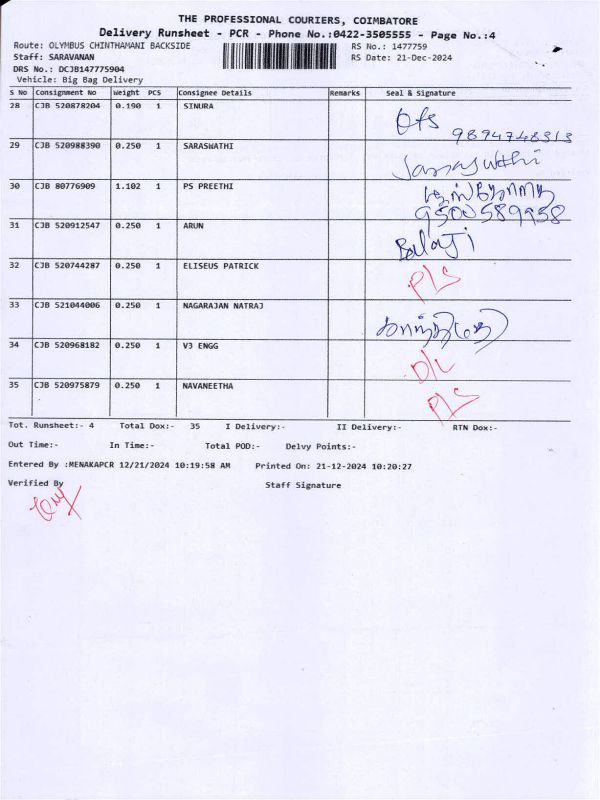 THE PROFESSIONAL COURIERS, COIMBATORE
Delivery Runsheet - PCR - Phone No.:0422-3505555 - Page No.:4
Route: OLYMBUS CHINTHAMANI BACKSIDE RS No.: 1477759
Staff: SARAVANAN RS Date: 21-Dec-2024
DRS No.: DCJB147775904
Vehicle: Big Bag Delivery
S No Consignment No Weight PCS Consignee Details Remarks Seal & Signature
28 CJB 520878204 0.190 1 SINURA
9894748313
29 CJB 520988390 0.250 1 SARASWATHI Saraswathi
30 CJB 80776909 1.102 1 PS PREETHI
9500589958
31 CJB 520912547 0.250 1 ARUN Balaji
32 CJB 520744287 0.250 1 ELISEUS PATRICK P/S
33 CJB 521044006 0.250 1 NAGARAJAN NATRAJ
34 CJB 520968182 0.250 1 V3 ENGG D/L
35 CJB 520975879 0.250 1 NAVANEETHA P/S
Tot. Runsheet:- 4 Total Dox:- 35 I Delivery:- II Delivery:- RTN Dox:-
Out Time:- In Time:- Total POD:- Delvy Points:-
Entered By :MENAKAPCR 12/21/2024 10:19:58 AM Printed On: 21-12-2024 10:20:27
Verified By Staff Signature